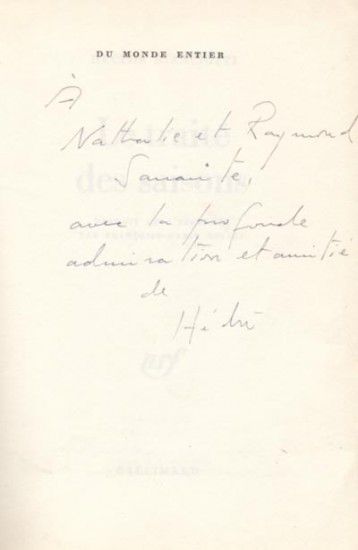 DU MONDE ENTIER
À
Nathalie et Raymond
Sarraute,
avec la profonde
admiration et amitié
de
Le traité
des saisons
nrf
GALLIMARD